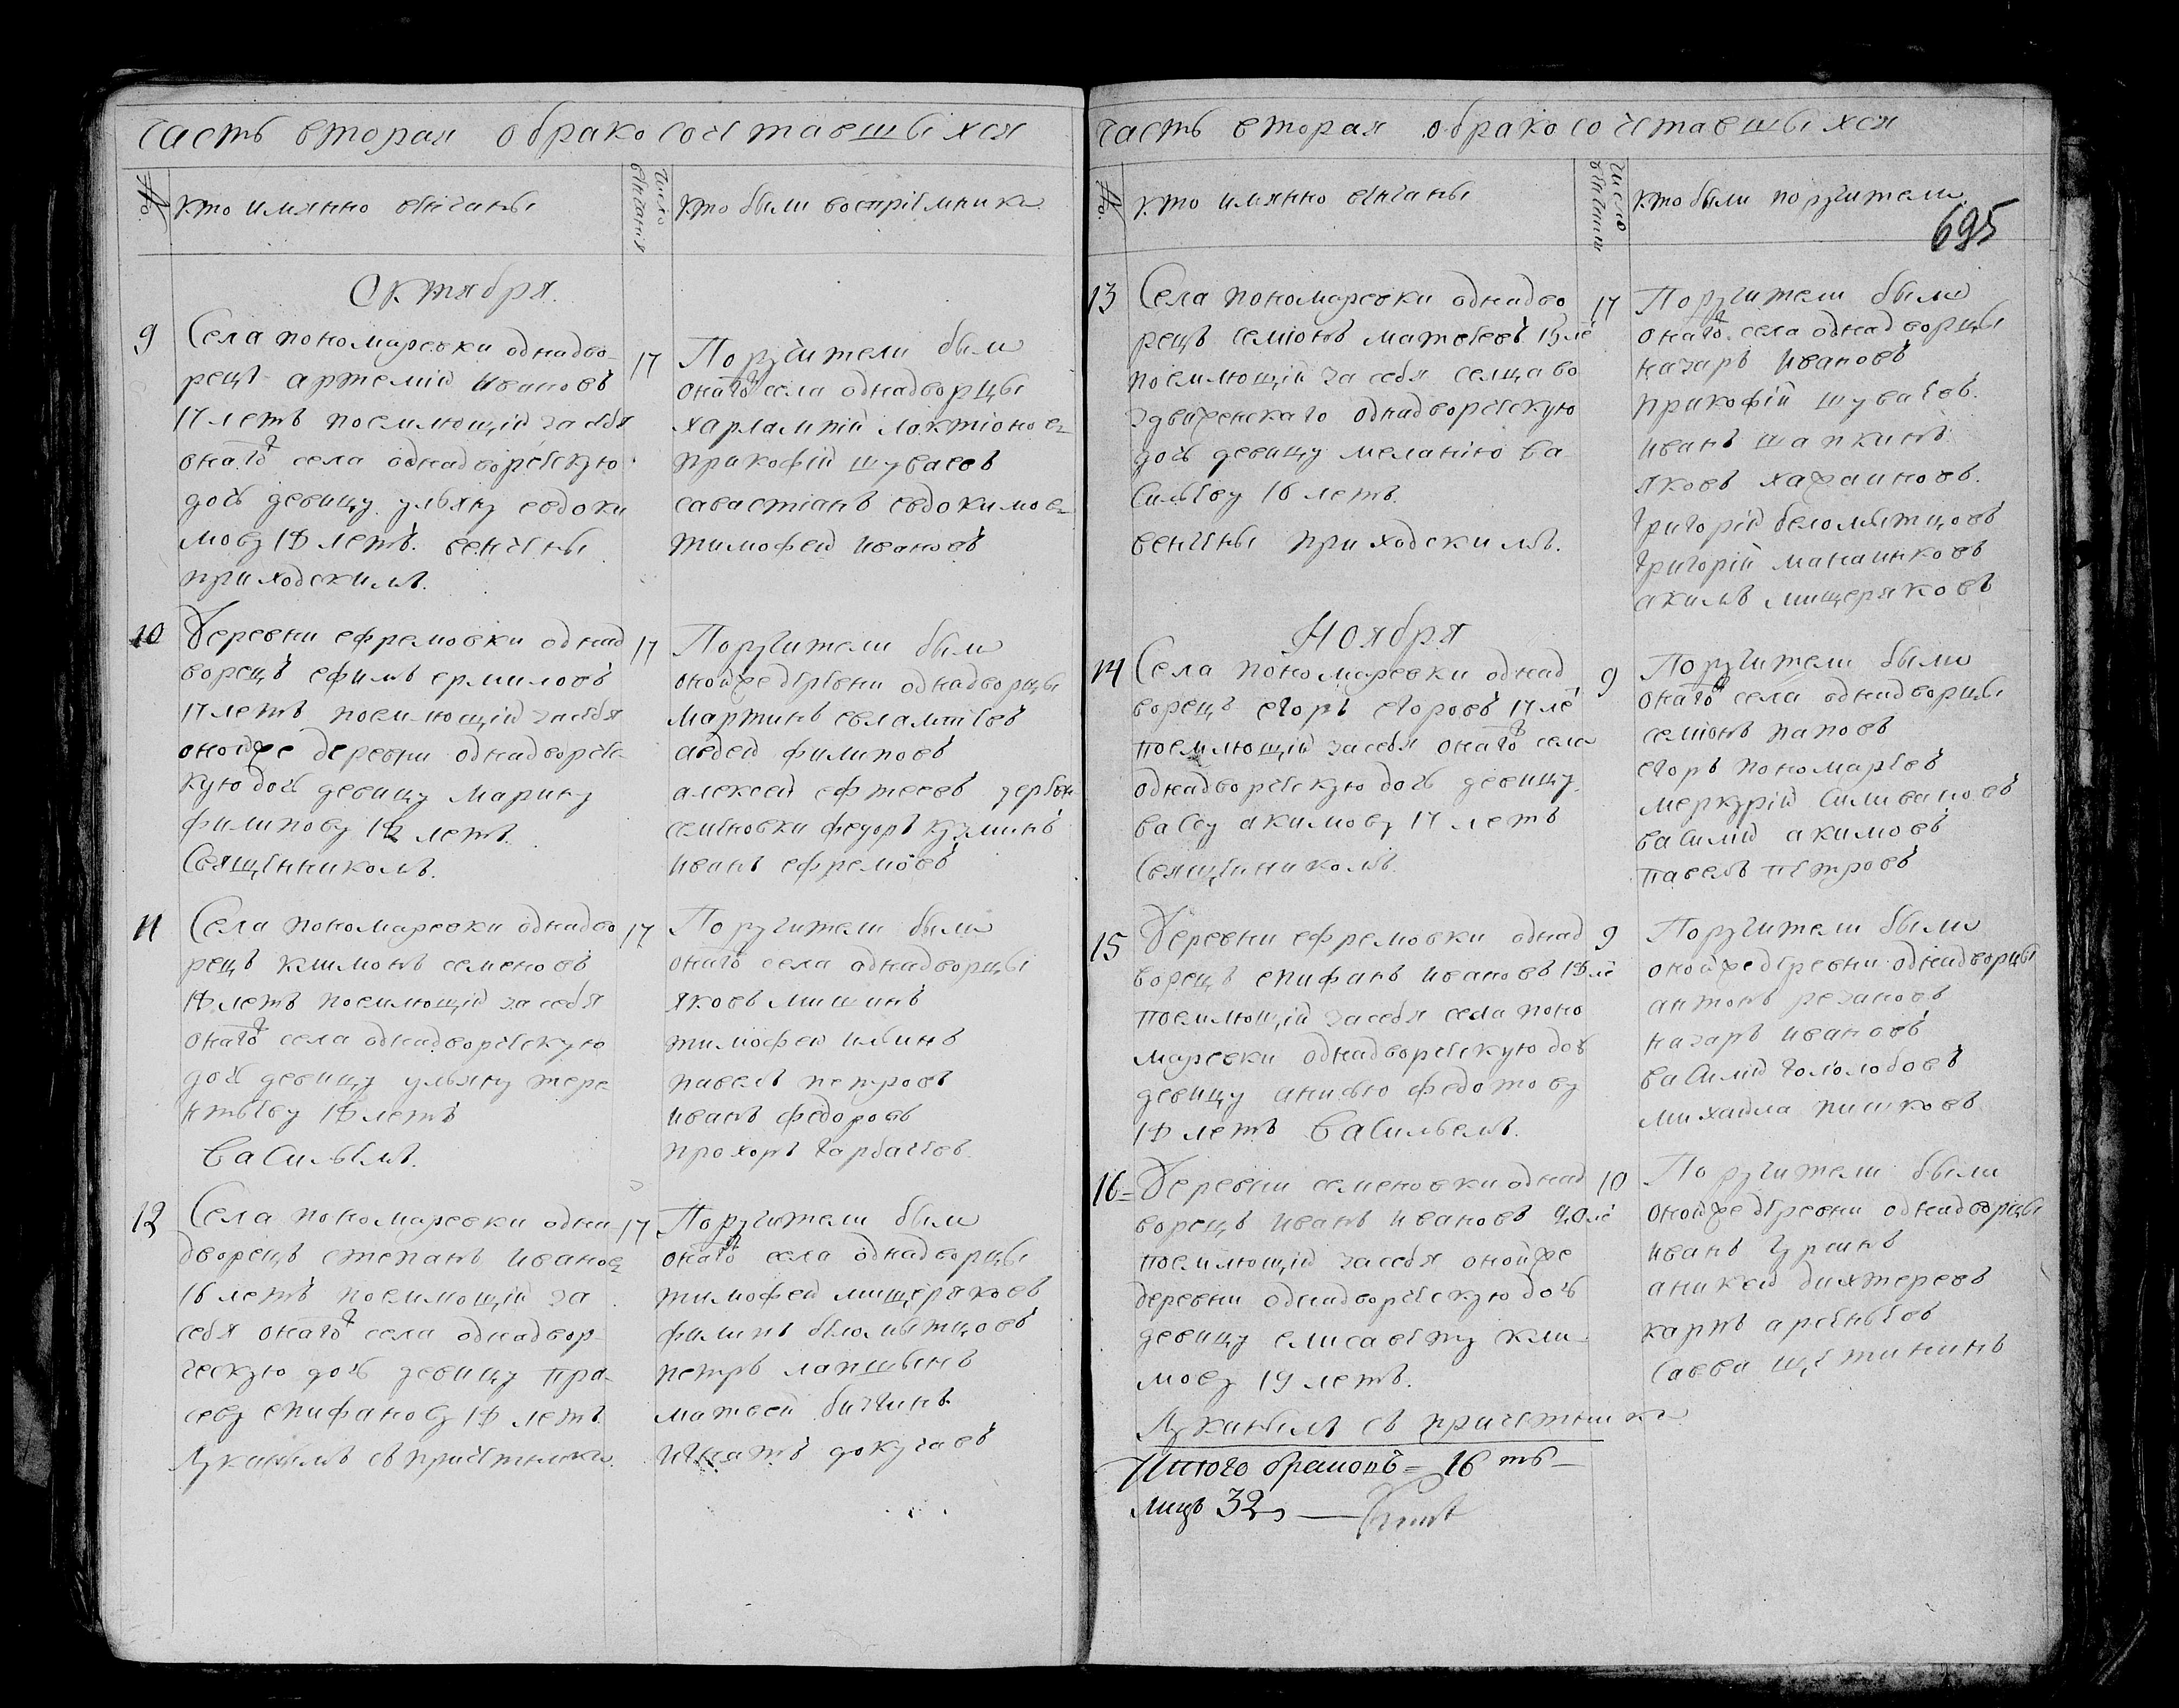 часть вторая обракосочетавшыхся
№. кто имянно венчаны
число венчания
кто были восприемники
Октября.
9 Села пономаревки однадво-
рецъ артемий Ивановъ
17 летъ поемлющій засебя
онагож села однадворческую
дочь девицу ульяну евдоки
мову летъ. венчены
приходскимъ.
17 Поручители были
онагож села однадворцы
харлампій лактіонов
прикофій шуваевъ
савастіанъ евдокимов
тимофей Ивановъ
10 Деревни ефремовки однад
ворецъ ефимъ ермиловъ
17 летъ поемлющій засебя
онойже деревни однадворчес-
кую дочь девицу марину
филипову летъ.
Священникомъ.
17 Поручители были
онойже деревни однадворцы
мартинъ евлампіевъ
авдей филиповъ
алексей ефтеевъ дервни
семеновки федоръ кузминъ
иванъ ефремовъ
11 Села пономаревки однадво
рецъ климонъ семеновъ
летъ поемлющій засебя
онагож села однадворческую
дочь девицу ульяну тере-
нтьеву летъ
Василіемъ.
17 Поручители были
онагож села однадворцы
яковъ мишинъ
тимофей ильинъ
павелъ петровъ
иванъ федоровъ
прохоръ гарбачевъ.
12 Села пономаревки одна
дворецъ степанъ Иванов
16 летъ поемлющій за
себя онагож села однадвор-
ческую дочь девицу пра-
севу епифанову летъ
Лукьяномъ съ причетники.
17 Поручители были
онагож села однадворцы
тимофей мищеряковъ
филипъ беломытцовъ
петръ лапшынъ
матвей
игнатъ докучаевъ
часть вторая обракосочетавшыхся
№. кто имянно венчаны
число венчания
кто были поручители.
695
13 Села пономаревки однадво
рецъ семіонъ матвеевъ ле
поемлющій за себя селца во
здвиженскаго однадворческую
дочь девицу меланію ва
сильеву 16 летъ.
венчены приходскимъ.
17 Поручители были
онагож села однадворцы
назаръ Ивановъ
прикофій шуваевъ.
иванъ шапкинъ
яковъ
григорій беломытцовъ
григорій
акимъ мищеряковъ
Ноября
14 Села пономаревки однад
ворецъ егоръ егоровъ 17 ле
поемлющій засебя онагож села
однадворческую дочь девицу
васву акимову 17 летъ
Священникомъ.
9 Поручители были
онагож села однадворцы
семіонъ паповъ
егоръ пономаревъ
меркурій Силивановъ
василій акимовъ
павелъ петровъ
15 Деревни ефремовки однад
ворецъ епифанъ ивановъ ле
поемлющій засебя села поно
маревки однадворческую дочь
девицу анисью федотову
летъ Васильемъ.
9 Поручители были
онойже деревни однадворцы
антонъ резановъ
назаръ ивановъ
василій гололобовъ
михайла пишковъ
16 Деревни семеновки однад
ворецъ иванъ ивановъ ле
поемлющій засебя онойже
деревни однадворческую дочь
девицу елисавету кли-
мову 19 летъ.
Лукьяномъ съ причетники
10 Поручители были
онойже деревни однадворцы
иванъ гуринъ
аникей дихтеревъ
карпъ арсеньевъ
савва щетининъ
Итого браковъ = 16 ть
лицъ 32